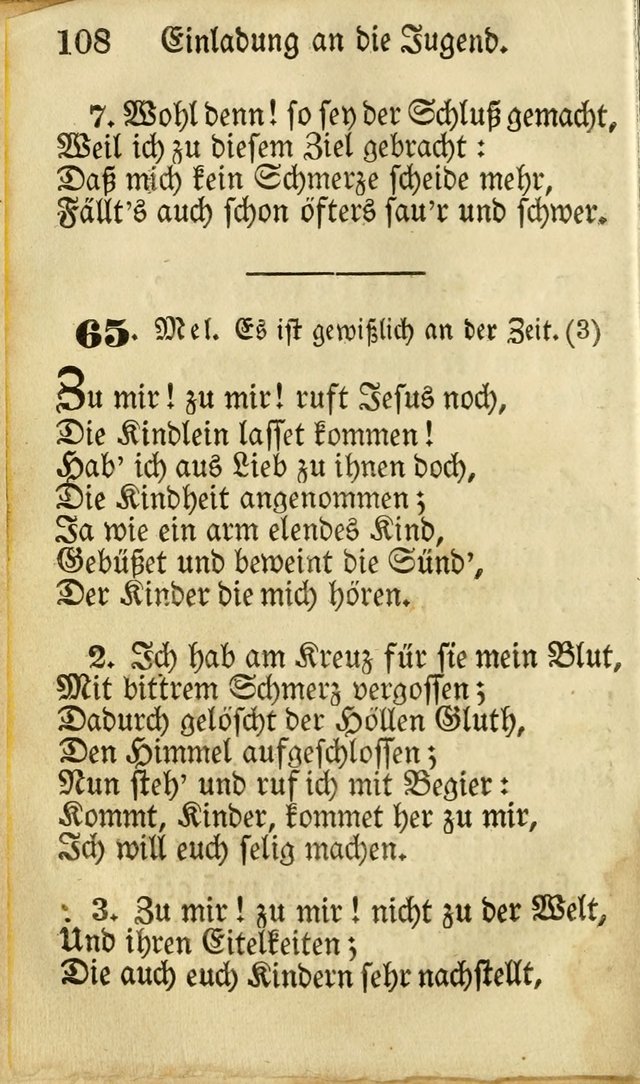 108 Einladung an die Jugend.
7. Wohl denn! so sey der Schluß gemacht,
Weil ich zu diesem Ziel gebracht:
Daß mich kein Schmerze scheide mehr,
Fällt's auch schon öfters sau'r und schwer.
65. Mel. Es ist gewißlich an der Zeit. (3)
Zu mir! zu mir! ruft Jesus noch,
Die Kindlein lasset kommen!
Hab' ich aus Lieb zu ihnen doch,
Die Kindheit angenommen;
Ja wie ein arm elendes Kind,
Gebüßet und beweint die Sünd',
Der Kinder die mich hören.
2. Ich hab am Kreuz für sie mein Blut,
Mit bittrem Schmerz vergossen;
Dadurch gelöscht der Höllen Gluth,
Den Himmel aufgeschlossen;
Nun steh' und ruf ich mit Begier:
Kommt, Kinder, kommet her zu mir,
Ich will euch selig machen.
3. Zu mir! zu mir! nicht zu der Welt,
Und ihren Eitelkeiten;
Die auch euch Kindern sehr nachstellt,